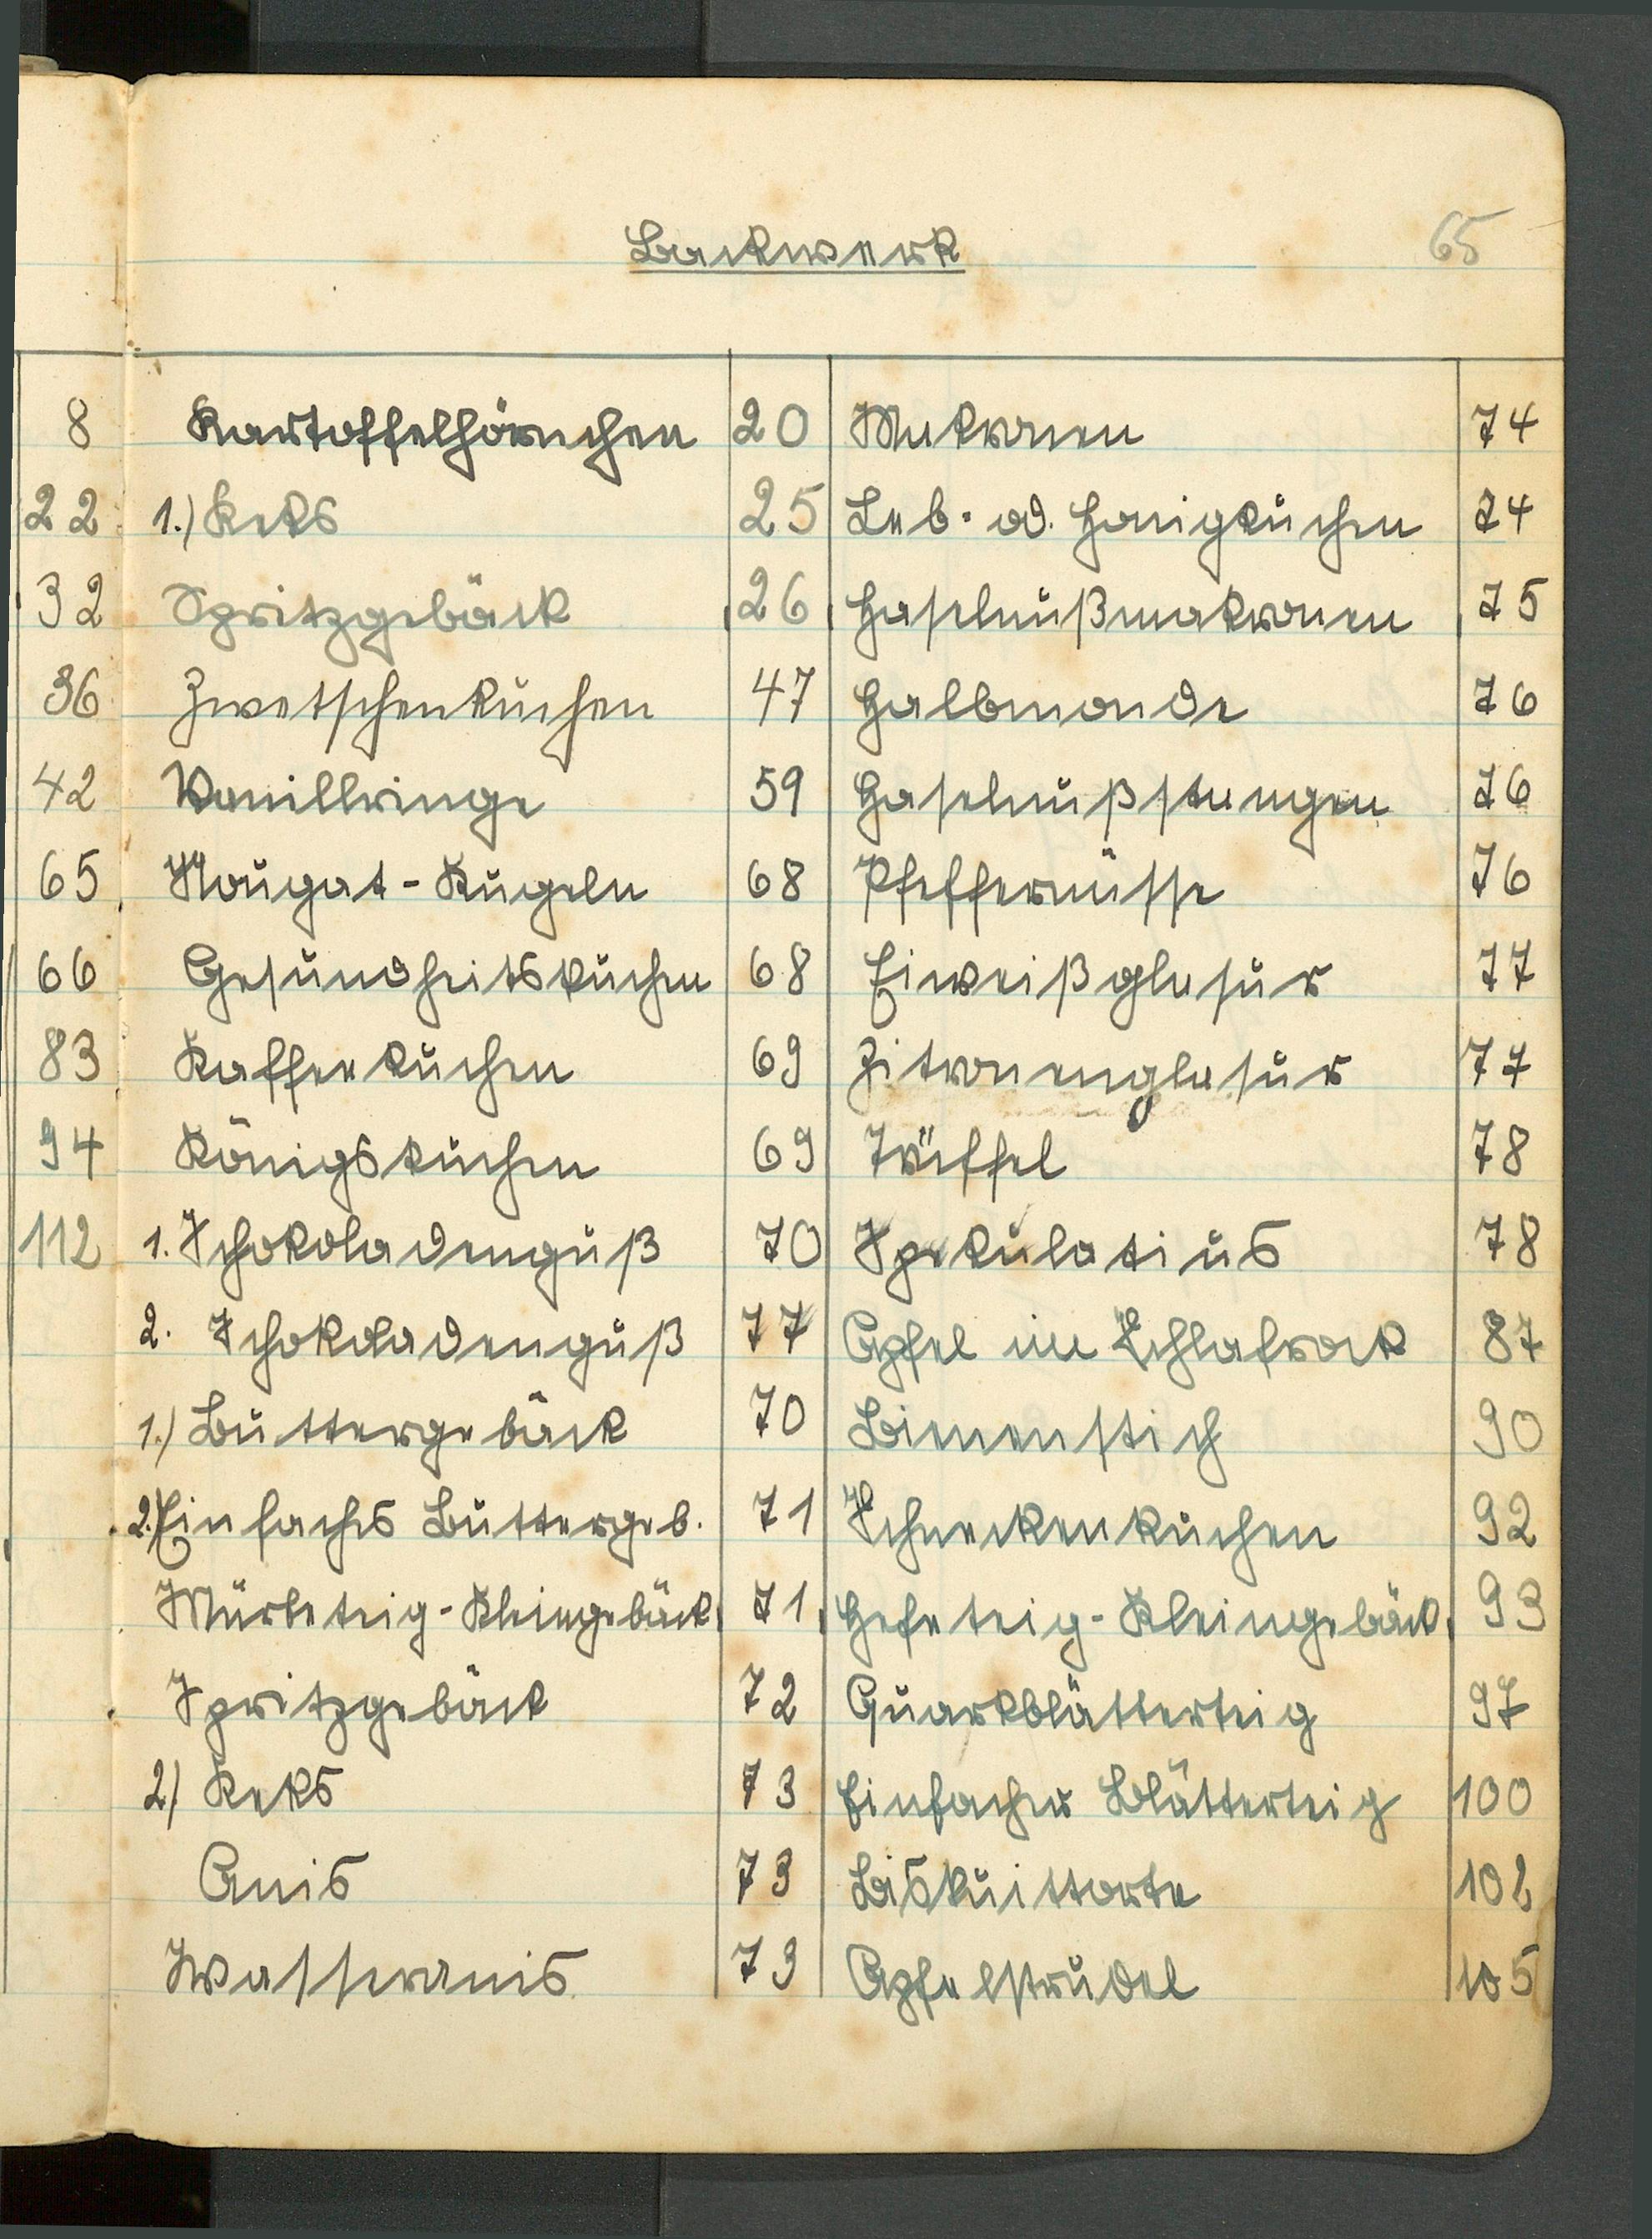 Backwerk 65
8 Kartoffelhörnchen 20 Makronen 74
22 1.) Keks 25 Leb- od. Honigkuchen 74
32 Spritzgebäck 26 Haselnußmakronen 75
36 Zwetschenkuchen 47 Halbmonde 76
42 Vanillringe 59 Haselnußstangen 76
65 Nougat-Kugeln 68 Pfeffernüsse 76
66 Gesundheitskuchen 68 Eiweißglasur 77
83 Kaffeekuchen 69 Zitronenglasur 77
94 Königskuchen 69 Trüffel 78
112 1. Schokoladenguß 70 Spekulatius 78
2. Schokoladenguß 77 Apfel im Schlafrock 87
1.) Buttergebäck 70 Bienenstich 90
2.) Einfaches Buttergeb. 71 Schneckenkuchen 92
Mürbeteig-Kleingebäck 71 Hefeteig-Kleingebäck 93
Spritzgebäck 72 Quarkblätterteig 97
2) Keks 73 Einfacher Blätterteig 100
Anis 73 Biskuittorte 102
Wasseranis 73 Apfelstrudel 105